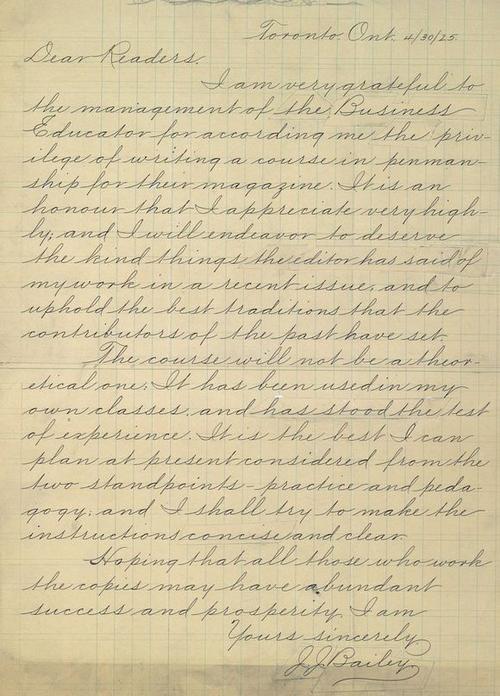 Toronto. Ont. 4/30/25.
Dear Readers.
I am very grateful to
the management of the Business
Educator for according me the priv-
ilege of writing a course in penman-
ship for their magazine. It is an
honour that I appreciate very high-
ly; and I will endeavor to deserve
the kind things the editor has said of
my work in a recent issue, and to
uphold the best traditions that the
contributors of the past have set.
The course will not be a theor-
etical one; It has been used in my
own classes, and has stood the test
of experience. It is the best I can
plan at present considered from the
two standpoints - practice and peda-
gogy; and I shall try to make the
instructions concise and clear.
Hoping that all those who work
the copies may have abundant
success and prosperity, I am
Yours sincerely
J. J. Bailey